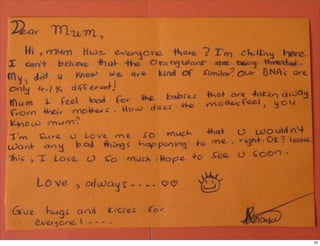 Dear Mum,
Hi, mum Hwz everyone there? I'm chilling here
I can't believe that the Orangutans are being threated.
My, did u know we are kind of similar? Our DNA's are
only 4.1% different!
Mum I feel bad for the babies that are taken away
from their mothers. How does the mother feel, you
know mum?
I'm sure u love me so much that u wouldn't
want any bad things happening to me. right. OK? leave
this, I love u so much. Hope to see u soon.
Love, always----♡♡
Give hugs and kisses for
everyone!----.
15